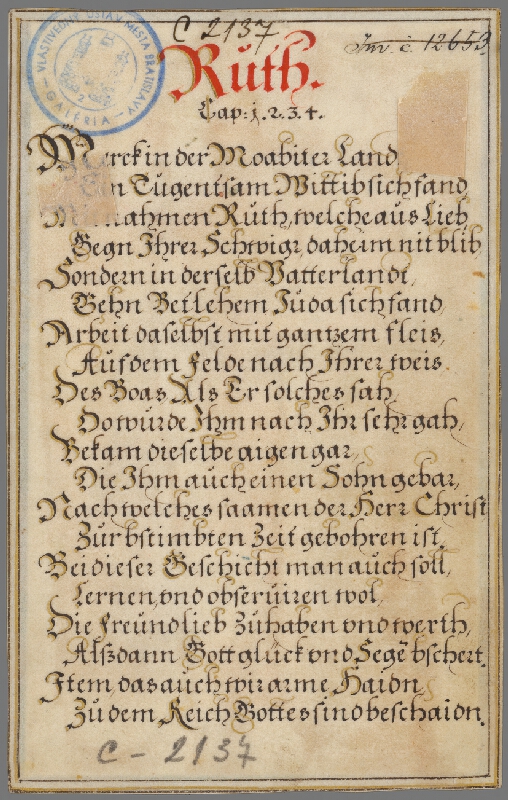 C 2137
Inv. č. 12653.
VLASTIVEDNÝ ÚSTAV MESTA BRATISLAVY
GALERIA
Ruth.
Cap: 1. 2. 3. 4.
Merck in der Moabiter Land,
Tugentsam Wittib sich fand,
Nahmen Ruth, welche aus Lieb
Gegn Ihrer Schwigr, daheim nit blib
Sondern in derselb Vatterlandt,
Gehn Betlehem Juda sich fand,
Arbeit daselbst mit gantzem fleis,
Auf dem felde nach Ihrer weis.
Des Boas Als Er solches sah,
Do würde Ihm nach Ihr sehr gah,
Bekam dieselbe aigen gar,
Die Ihm auch einen Sohn gebar,
Nach welches saamen der Herr Christ
Zur bstimbten Zeit gebohren ist,
Bei dieser Geschicht man auch soll,
Lernen, vnd obseruiren wol,
Die freund lieb Zuhaben vnd werth,
Alßdann Gott glück vnd Segē bschert.
Item das auch wir arme Haidn
Zu dem Reich Gottes sind beschaidn.
C - 2137